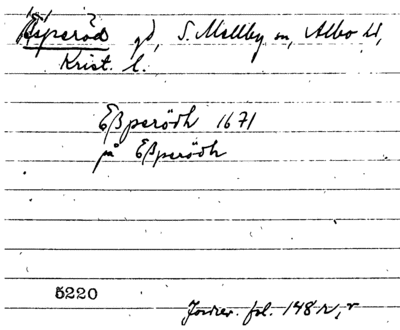 Esperöd gd, S. Mellby sn, Albo hd,
Krist. l.
Eßperödh 1671
på Eßperödh
5220
Jordrev. fol. 148 r, v